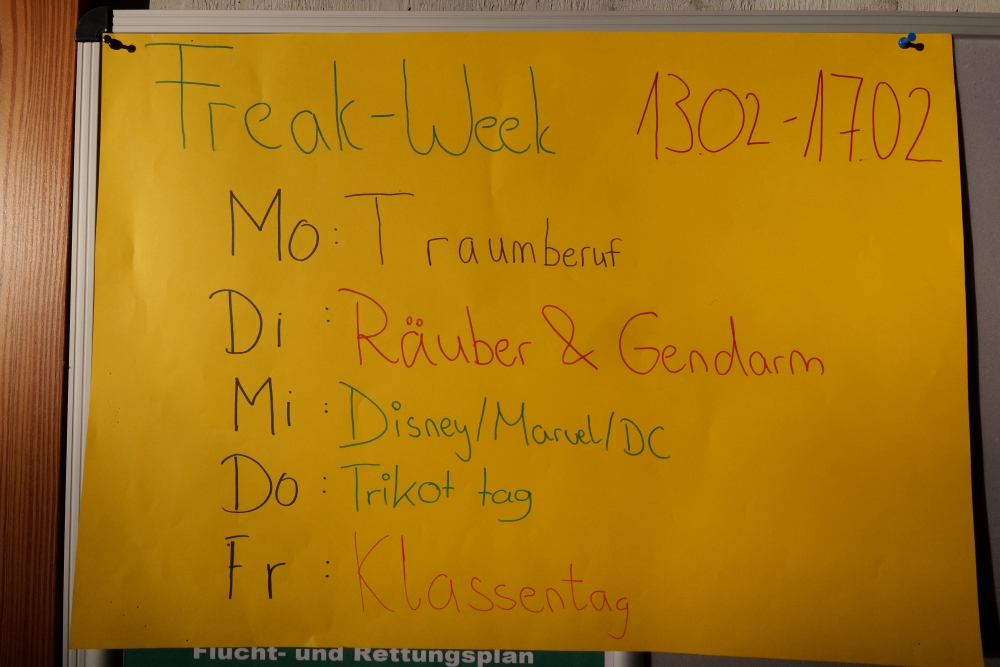 Freak-Week 13.02-17.02
Mo: Traumberuf
Di : Räuber & Gendarm
Mi : Disney/Marvel/DC
Do : Trikot tag
Fr : Klassentag
Flucht- und Rettungsplan